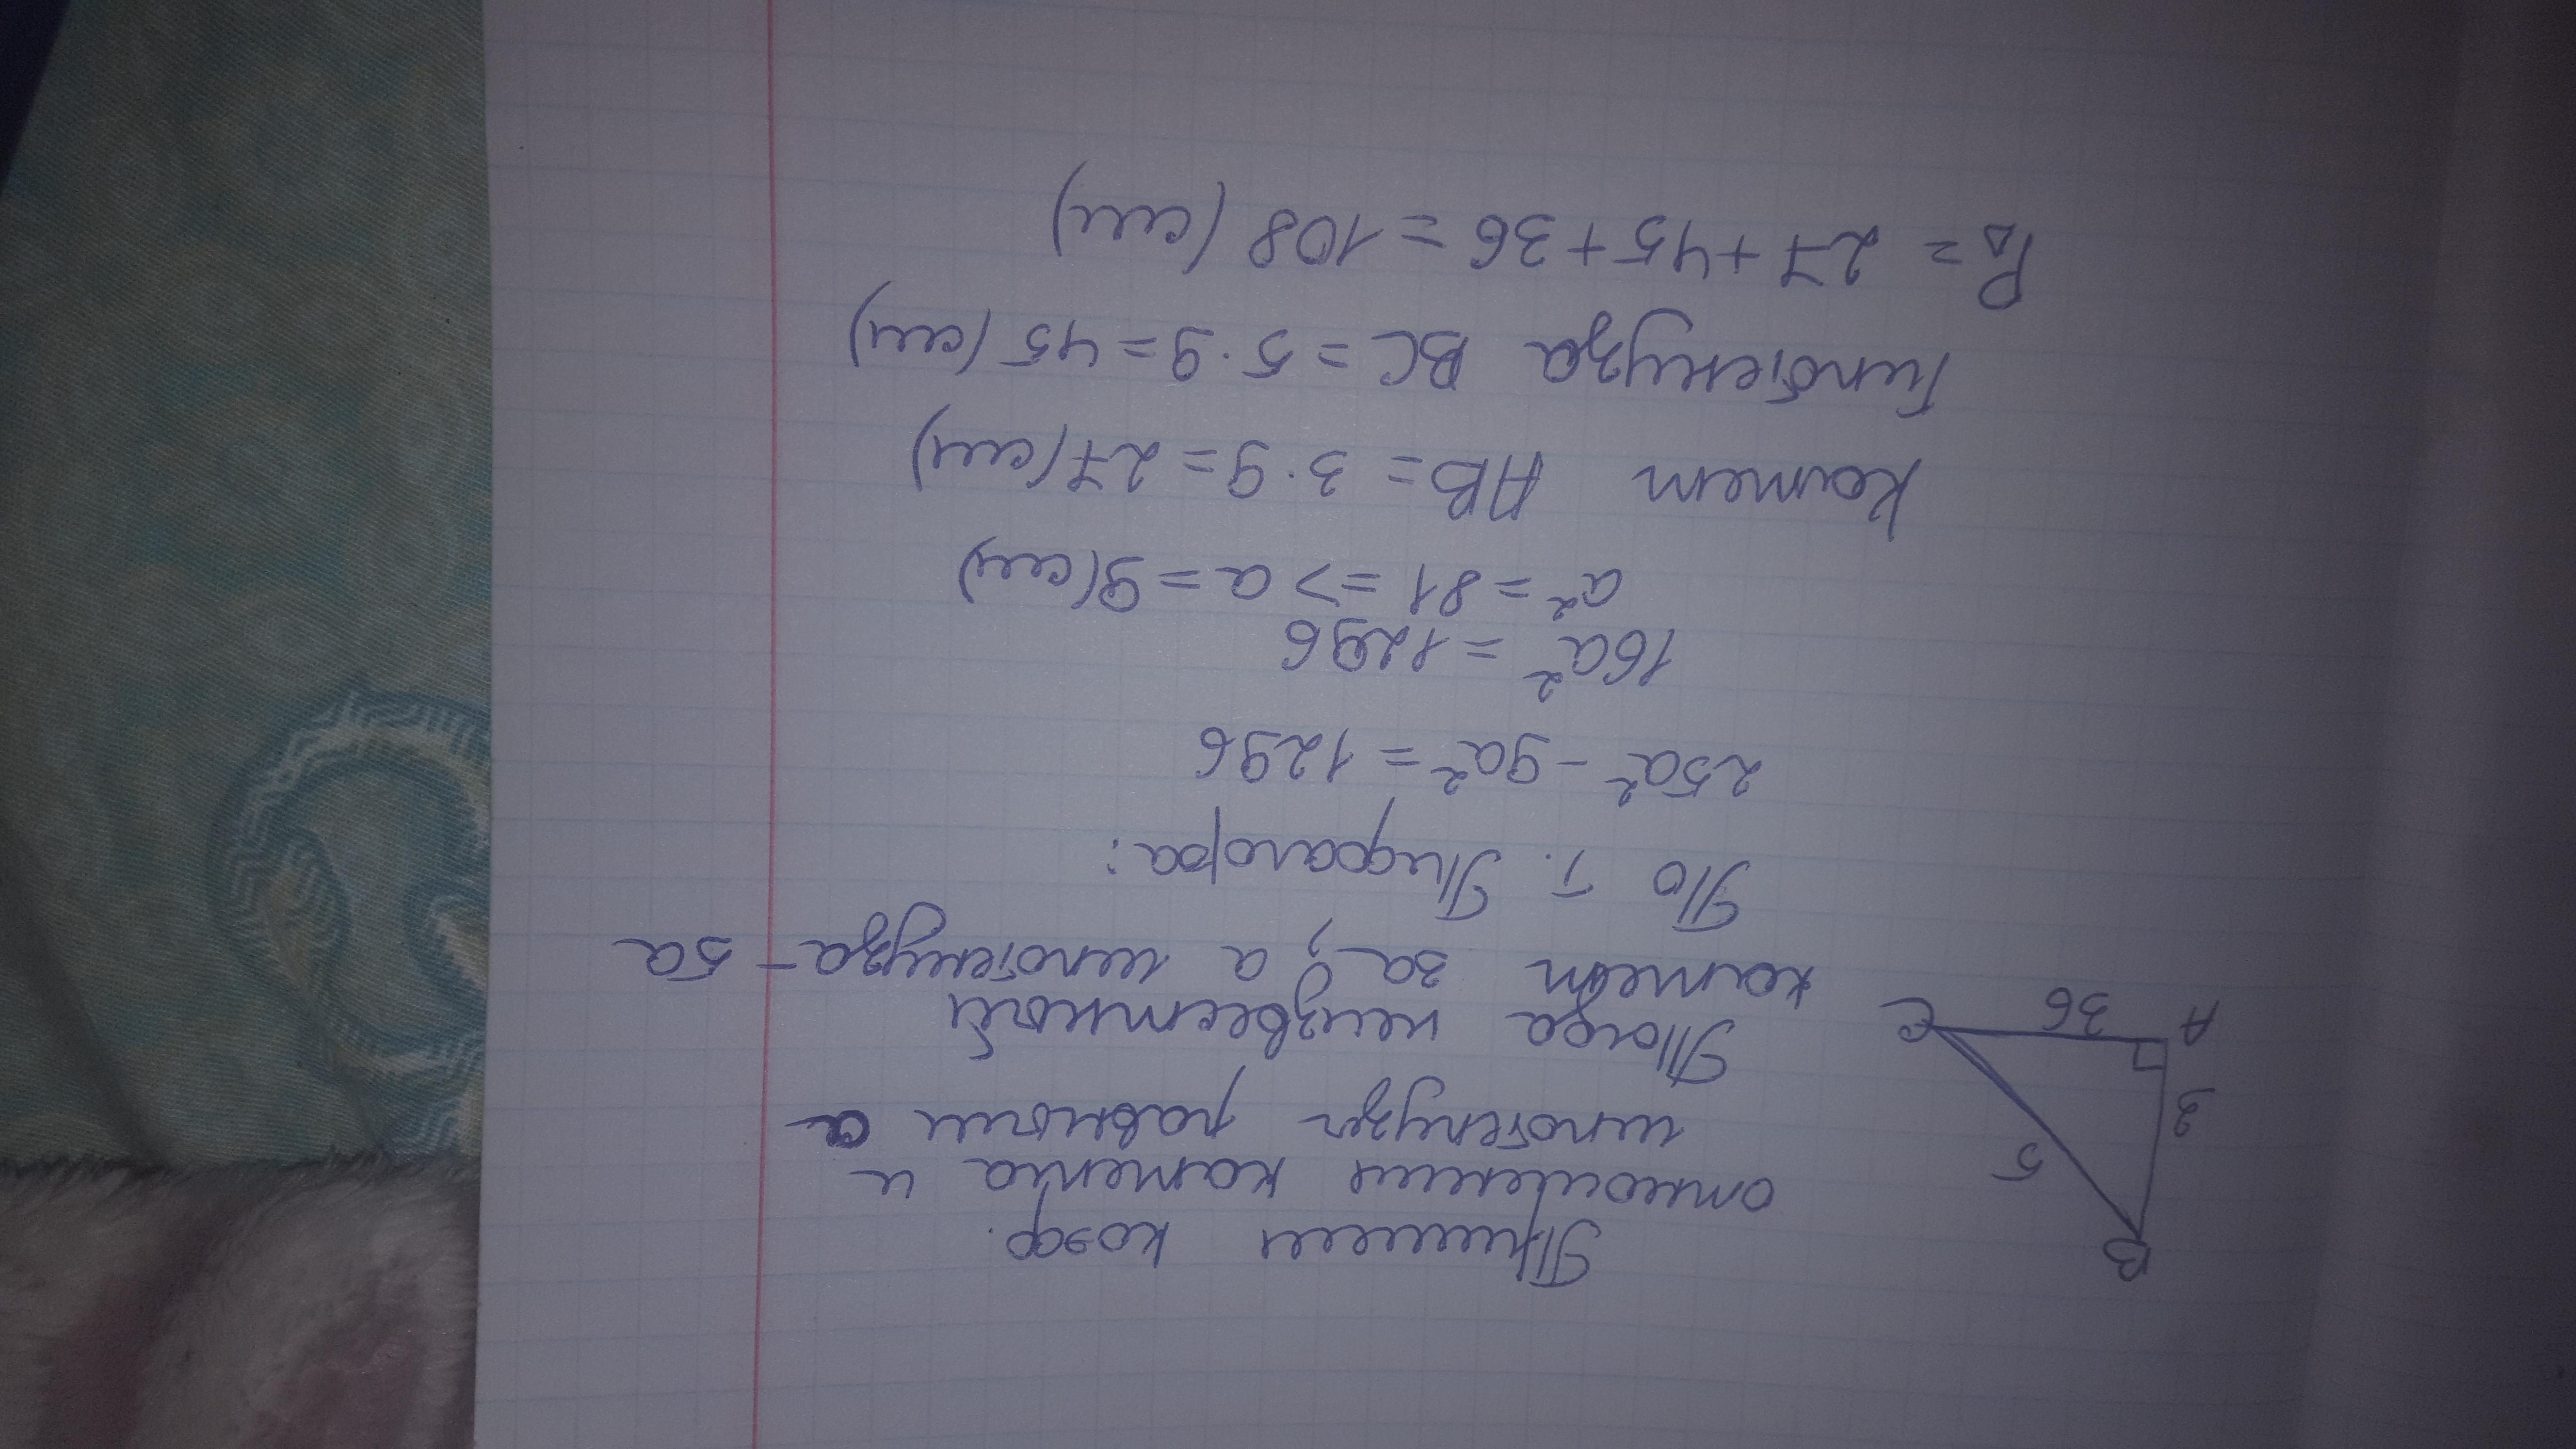 B
5
3
A
36
C
Примем коэф.
отношения катета и
гипотенузы равным a
Тогда неизвестный
катет 3a, а гипотенуза - 5a
По т. Пифагора:
25a² - 9a² = 1296
16a² = 1296
a² = 81 => a = 9 (см)
Катет AB = 3·9 = 27 (см)
Гипотенуза BC = 5·9 = 45 (см)
P△ = 27 + 45 + 36 = 108 (см)